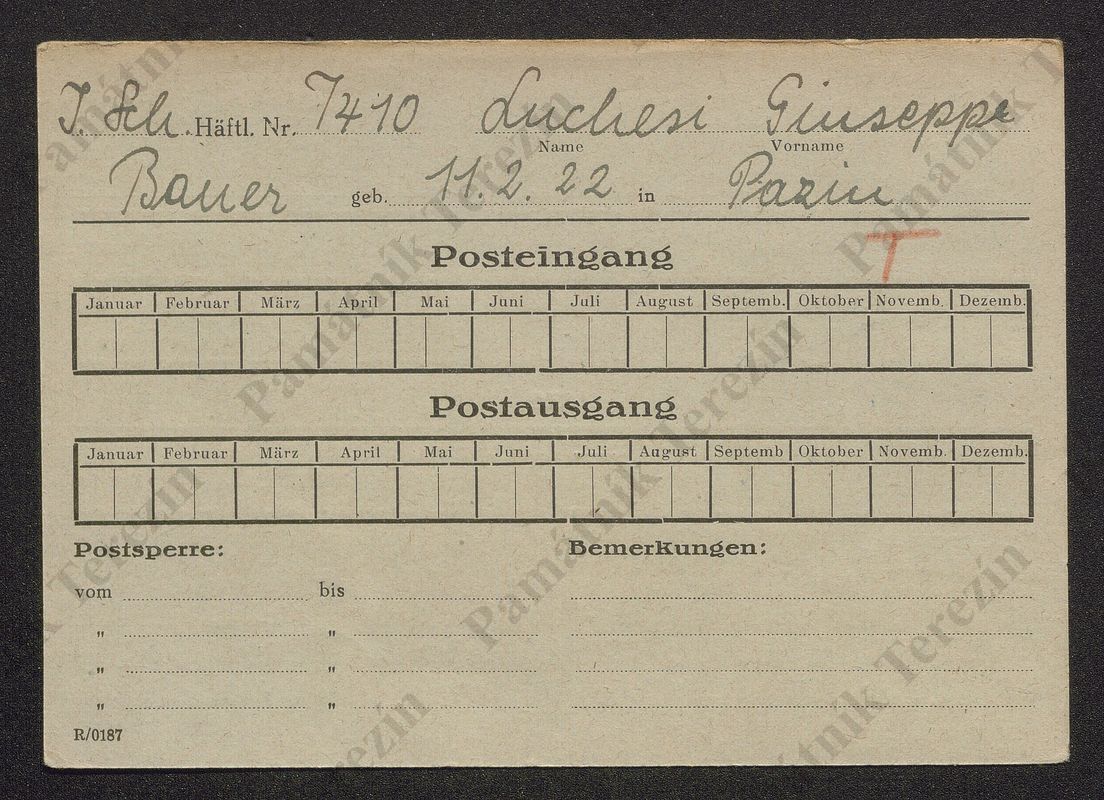 J. Sch. Häftl. Nr. 7410 Luchesi Giuseppe
Name Vorname
Bauer geb. 11.2.22 in Pazin
T
Posteingang
Januar Februar März April Mai Juni Juli August Septemb. Oktober Novemb. Dezemb.
Postausgang
Januar Februar März April Mai Juni Juli August Septemb Oktober Novemb. Dezemb.
Postsperre: Bemerkungen:
vom bis
" "
" "
" "
R/0187
Památník Terezín